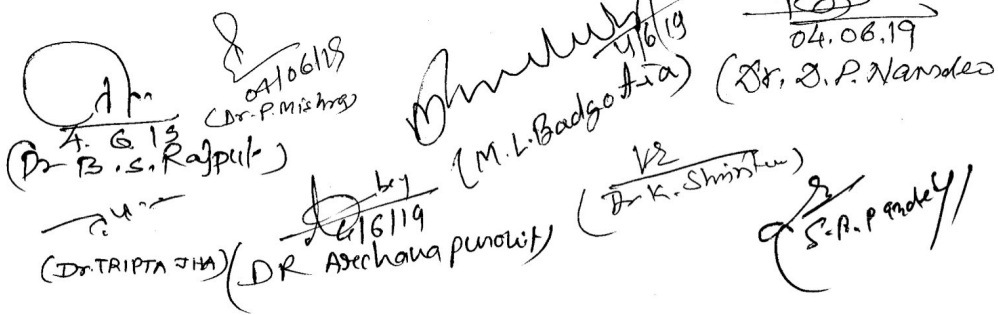 4.6.19
(Dr B.S. Rajput)
04/06/19
(Dr. P. Mishra)
4/6/19
(M.L. Badgotia)
04.06.19
(Dr. D. P. Namdeo
(Dr. TRIPTA JHA)
4/6/19
(DR Archana purohit)
(Dr K.
S.R. Pandey)